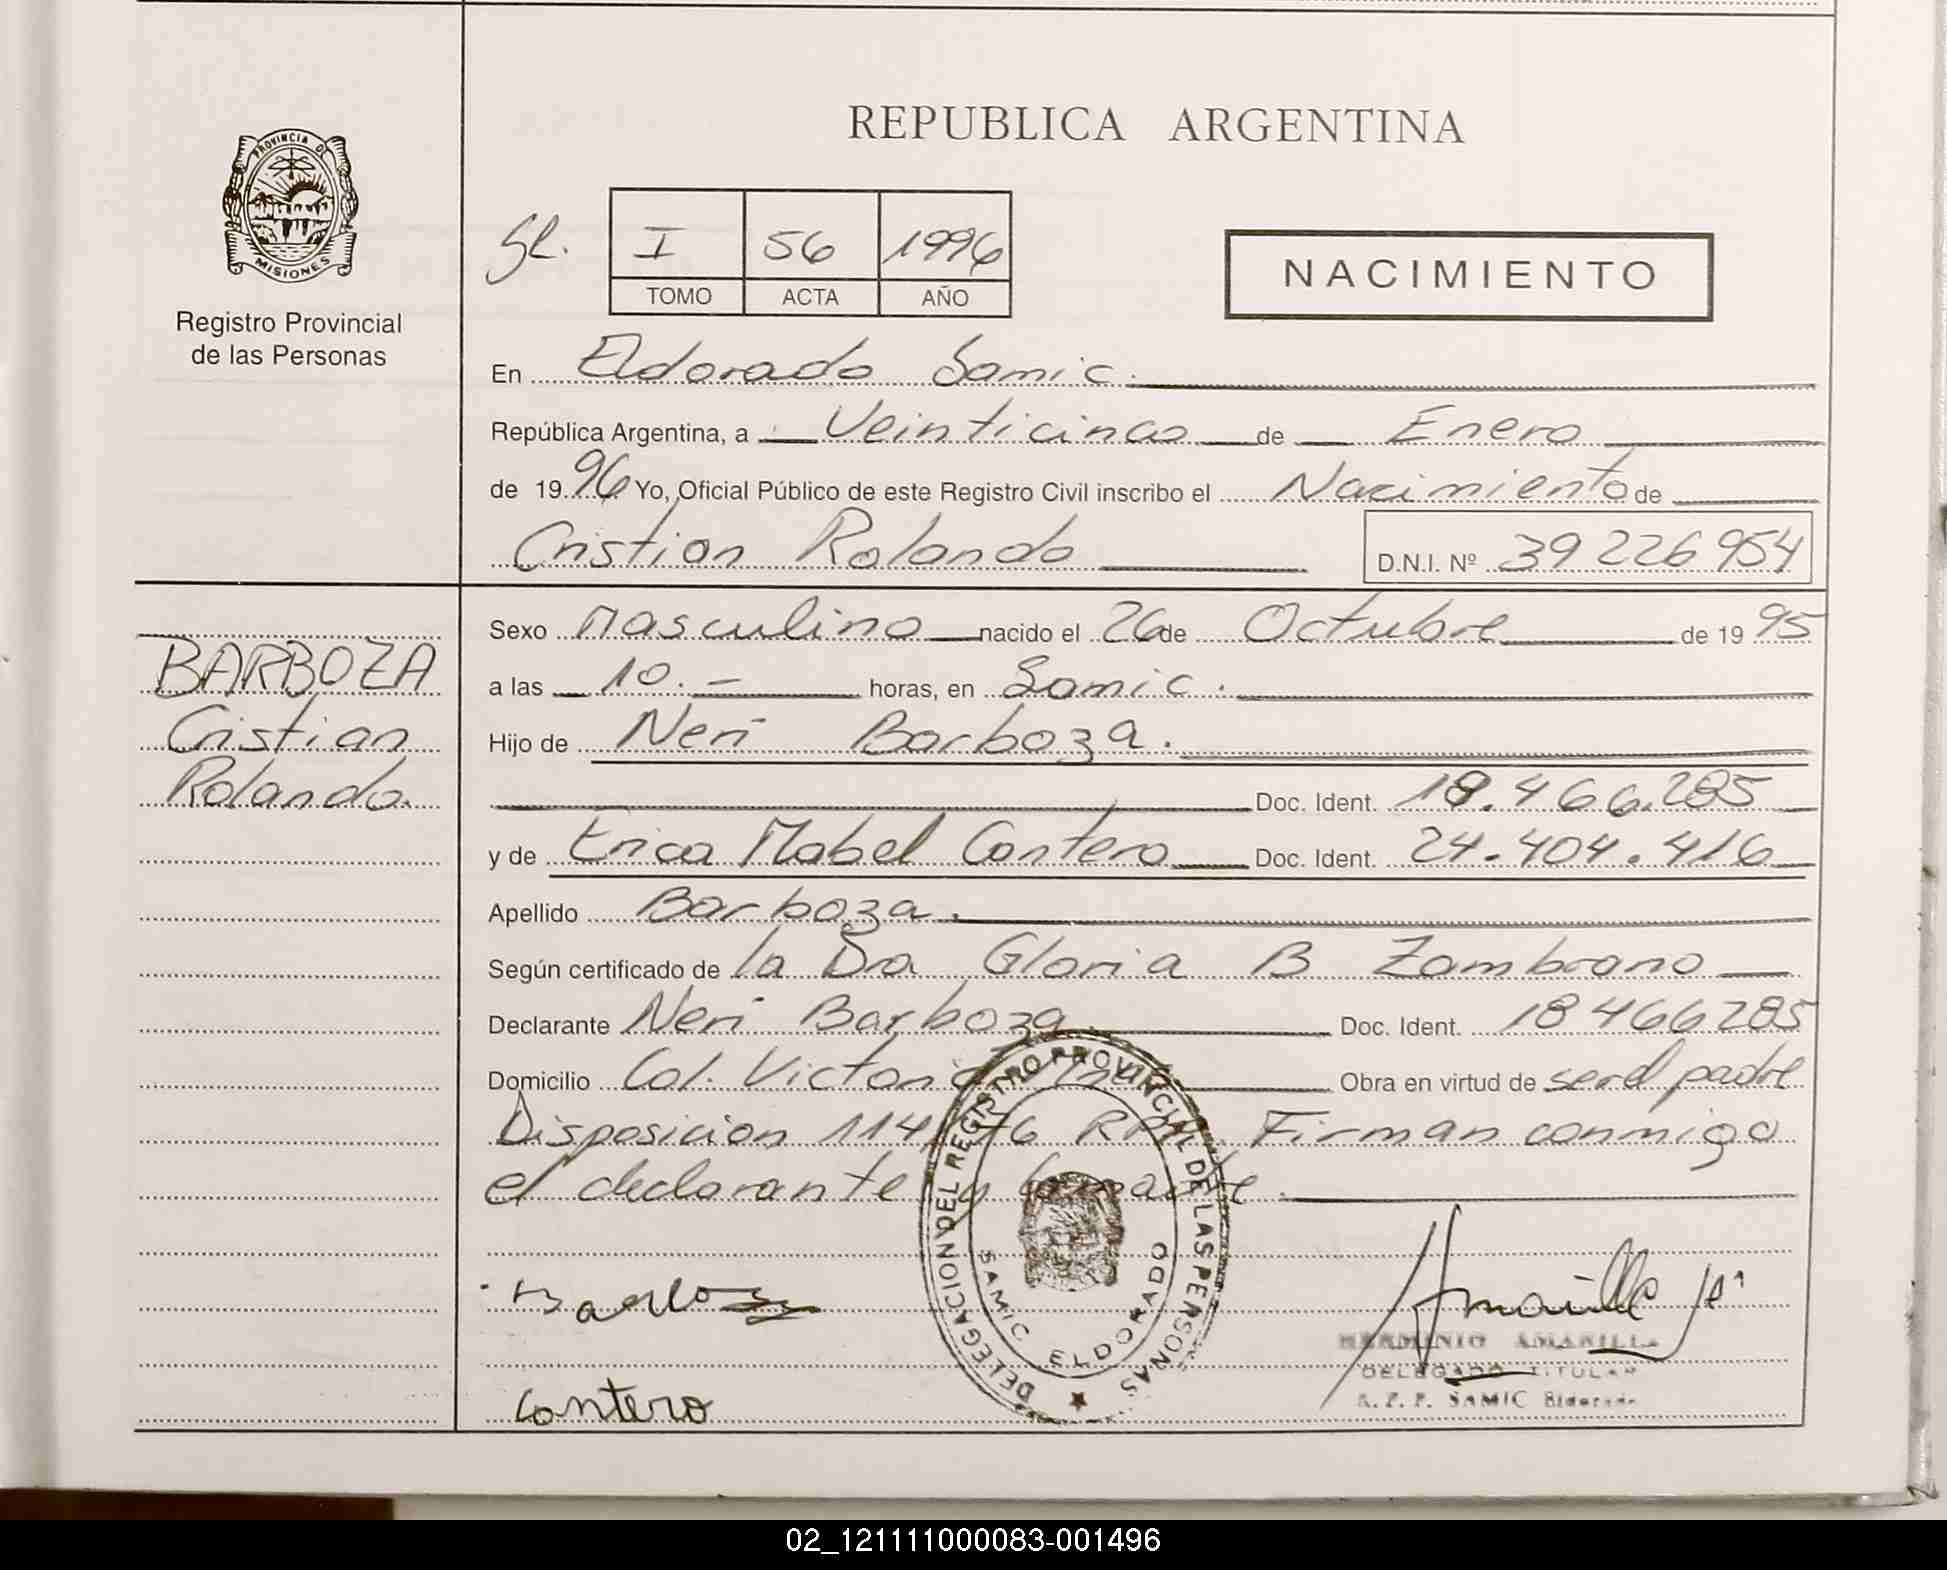 REPUBLICA ARGENTINA
PROVINCIA DE
MISIONES
Registro Provincial
de las Personas
I 56 1996
TOMO ACTA AÑO
NACIMIENTO
En Eldorado Samic.
República Argentina, a Veinticinco de Enero
de 1996 Yo, Oficial Público de este Registro Civil inscribo el Nacimiento de
Cristian Rolando D.N.I. Nº 39 226 954
BARBOZA
Cristian
Rolando.
Sexo Masculino nacido el 26 de Octubre de 1995
a las 10.- horas, en Samic.
Hijo de Neri Barboza.
Doc. Ident. 18.466.285
y de Erica Mabel Cantero Doc. Ident. 24.404.416
Apellido Barboza.
Según certificado de la Dra Gloria B Zambrano
Declarante Neri Barboza Doc. Ident. 18466285
Domicilio Col. Victoria Obra en virtud de ser el padre
Disposicion 114/76 RPP Firman conmigo
el declarante y la madre.
Barboza
Cantero
DELEGACION DEL REGISTRO PROVINCIAL DE LAS PERSONAS
SAMIC ELDORADO
HERMINIO AMARILLA
DELEGADO TITULAR
R.P.P. SAMIC Eldorado
02_121111000083-001496